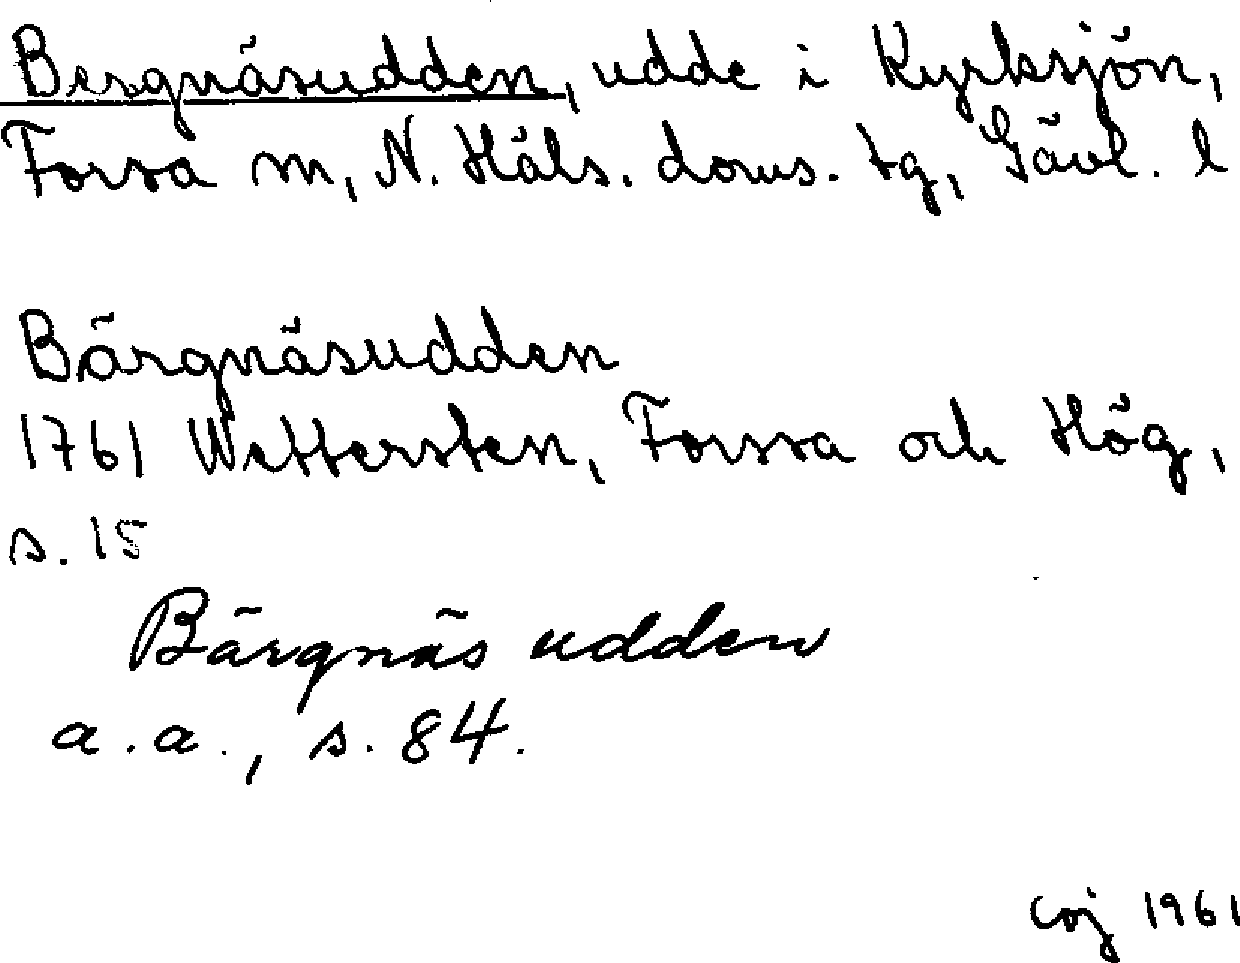 Bergnäsudden, udde i Kyrksjön,
Forsa sn, N. Häls. doms. tg, Gävl. l
Bärgnäsudden
1761 Wettersten, Forssa och Hög,
s. 15
Bärgnäs udden
a.a., s. 84.
coj 1961